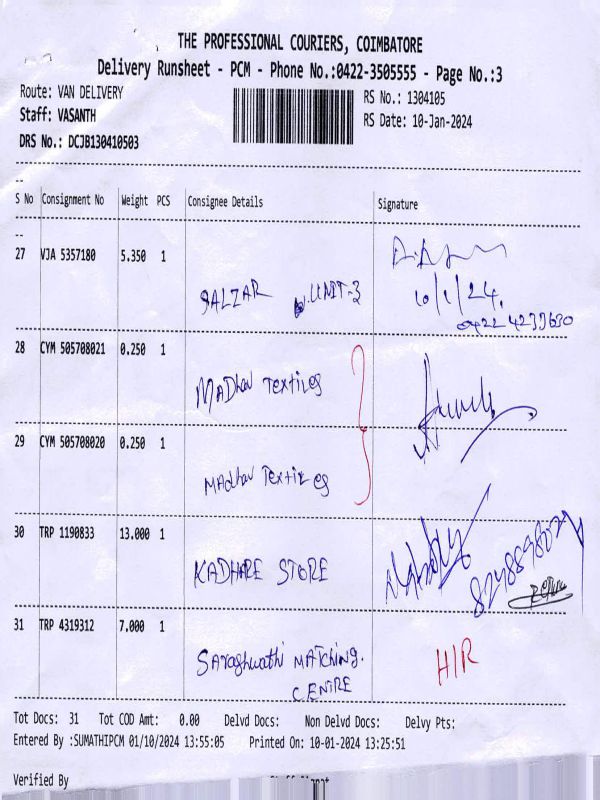 THE PROFESSIONAL COURIERS, COIMBATORE
Delivery Runsheet - PCM - Phone No.:0422-3505555 - Page No.:3
Route: VAN DELIVERY
RS No.: 1304105
Staff: VASANTH
RS Date: 10-Jan-2024
DRS No.: DCJB130410503
S No Consignment No Weight PCS Consignee Details Signature
27 VJA 5357180 5.350 1
SALZAR UNIT-3
10/1/24,
0422 4233630
28 CYM 505708021 0.250 1
MADhav Textiles
29 CYM 505708020 0.250 1
MAdhav Textiles
30 TRP 1190833 13.000 1
KADHARE STORE
31 TRP 4319312 7.000 1
Saraghwathi MATching.
CENTRE
H/R
Tot Docs: 31 Tot COD Amt: 0.00 Delvd Docs: Non Delvd Docs: Delvy Pts:
Entered By :SUMATHIPCM 01/10/2024 13:55:05 Printed On: 10-01-2024 13:25:51
Verified By